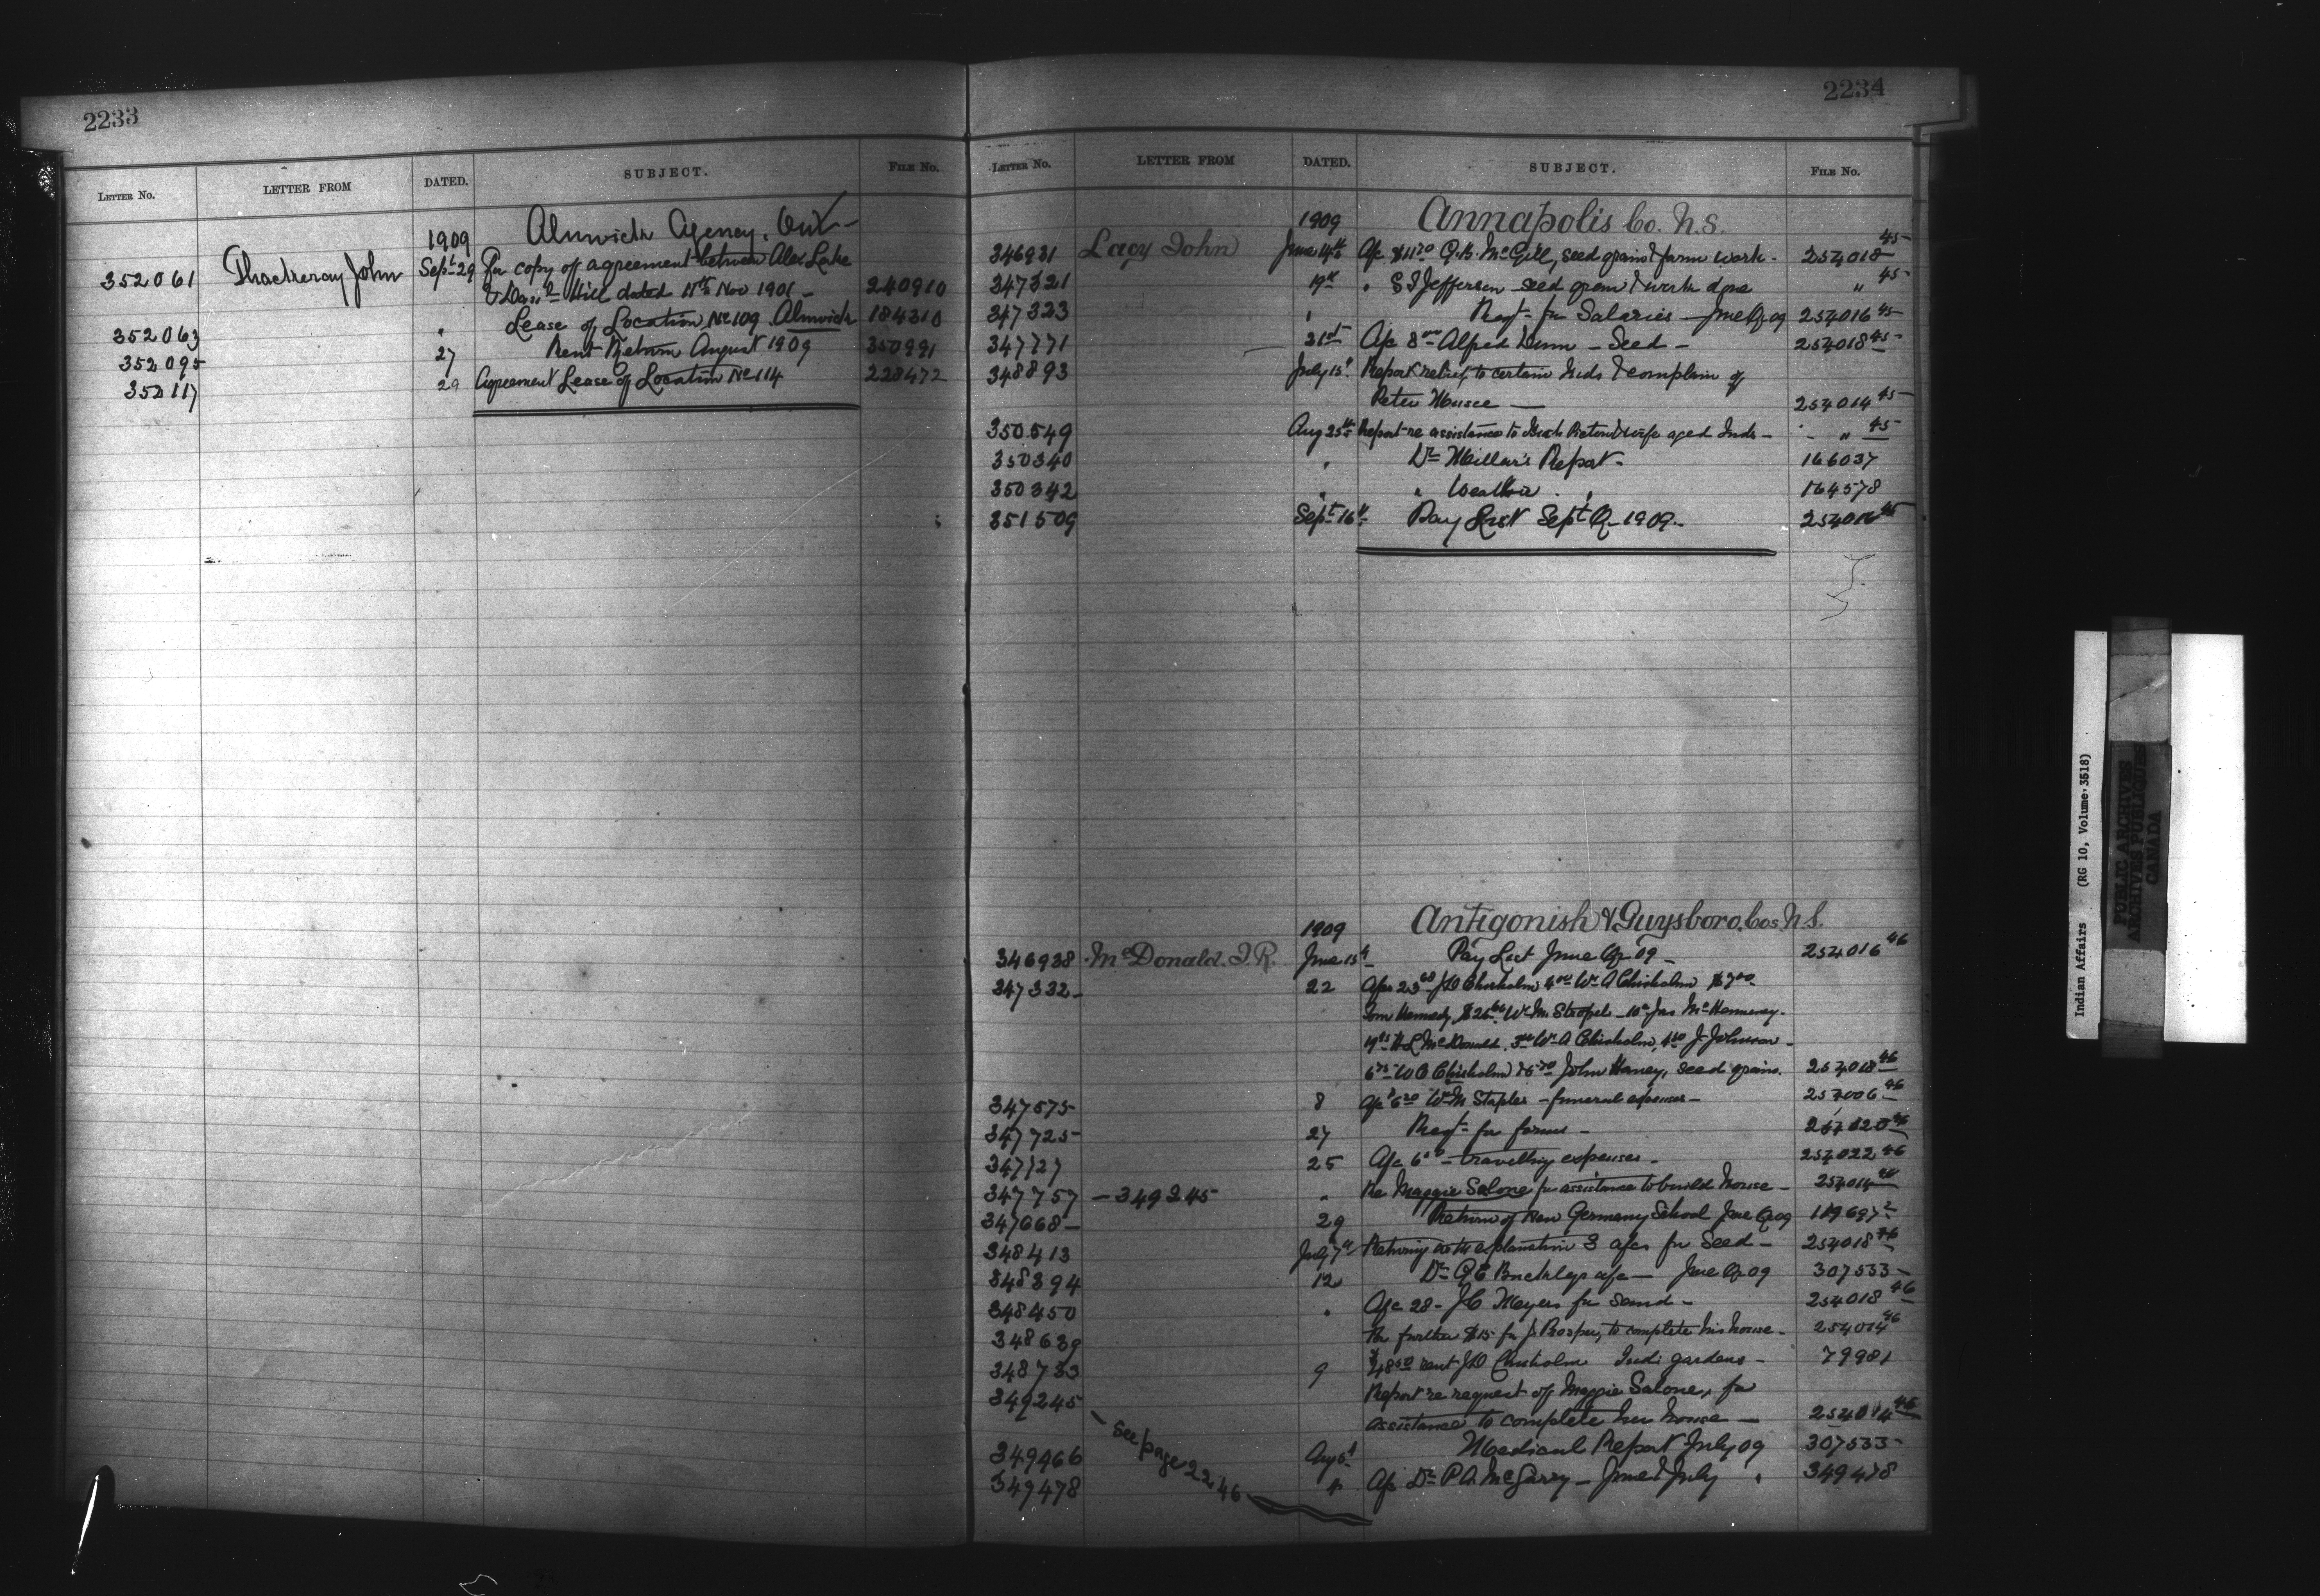 2233
LETTER No. LETTER FROM DATED. SUBJECT. FILE No.
Alnwick Agency. Ont-
1909
352061 Thackeray John Sept 29 for copy of agreement between Alex Lake
Hill dated 11th Nov 1901 - 240910
352063 " Lease of Location No 109 Alnwick 184310
352095 27 Rent Return August 1909 350991
352117 29 Agreement Lease of Location No 114 228472
2234
LETTER No. LETTER FROM DATED. SUBJECT. FILE No.
1909 Annapolis Co. N.S.
346931 Lacy John June 14th a/c $11.20 G.B. McGill, seed grain & farm work - 254018 45
347321 19th " S I Jefferson seed grain & work done " 45
347323 " Reqt for Salaries June Qr 09 254016 45
347771 21st a/c 8 00 Alfred Dunn - Seed - 254018 45
348893 July 15t Report relief, to certain Inds & complain of
Peter Muse — 254014 45
350549 Aug 25th Report re assistance to & wife aged Inds - " 45
350340 " Dr Millar's Report - 166037
350342 " " " 164578
351509 Sept 16th Pay List Sept Qr 1909 - 254016 45
1909 Antigonish & Guysboro Cos N.S.
346938 McDonald J.R. June 15t Pay List June Qr 09 - 254016 46
347332 - 22 a/cs 23 68 J D Chisholm 4 00 Wm A Chisholm $7 00
Tom Kennedy, $26 Wm Stropel - 10 Jas McHenney -
H L McDonald, 3 00 Wm A Chisholm, J Johnson -
6 75 W C Chisholm & John Haney, seed grains. 254018 46
347575 8 a/c Wm M Staples - funeral expenses - 254006 46
347725 27 Reqt for forms - 46
347727 25 a/c - travelling expenses - 254022 46
347757 - 349245 " Re Maggie Salone for assistance to build house - 254014 46
347668 - 29 Return of New Germany School June Qr 09 119697 2
348413 July 7th Returning with explanation 3 a/cs for Seed - 254018 46
348394 12 Dr Buckleys a/c - June Qr 09 307533 -
348450 " a/c 28 - J C Meyers for Seed - 254018 46
348639 for further $15 for J. Prosper, to complete his house - 254014 46
348733 9 rent J D Chisholm Indi gardens - 79981
349245 Report re request of Maggie Salone, for
assistance to complete her house — 254014 46
- see page 2246
349466 Aug 5t Medical Report July 09 307533 -
349478 a/c Dr P.A. McGarry - June & July " 349478
Indian Affairs (RG 10, Volume 3518)
PUBLIC ARCHIVES
ARCHIVES PUBLIQUES
CANADA